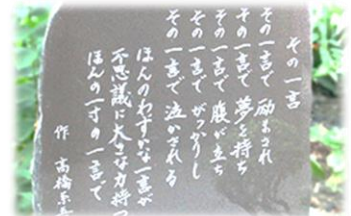 その一言
その一言で 励まされ
その一言で 夢を持ち
その一言で 腹が立ち
その一言で がっかりし
その一言で 泣かされる
ほんのわずかな一言が
不思議に大きな力持つ
ほんの一寸の一言で
作 高橋系吾